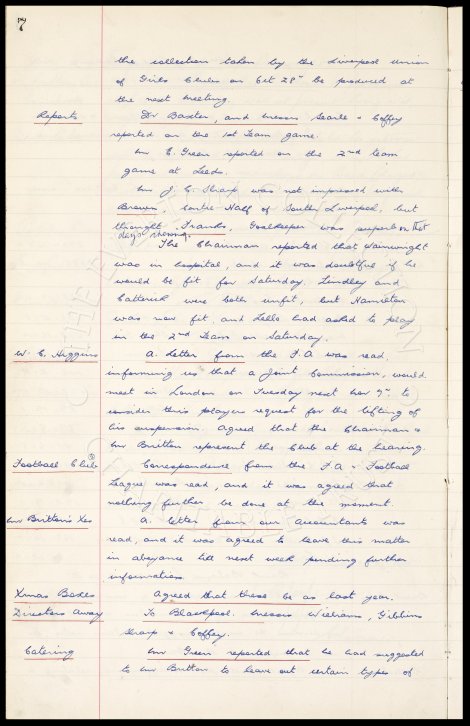 7
the collection taken by the Liverpool Union
of Girls Clubs on Oct 28" be produced at
the next meeting.
Reports
Dr Baxter, and Messrs Searle & Coffey
reported on the 1st Team game.
Mr E. Green reported on the 2nd team
game at Leeds.
Mr J. C. Sharp was not impressed with
Brown, Centre Half of South Liverpool, but
thought Franks, Goalkeeper was superb on that
day's showing.
The Chairman reported that Wainwright
was in hospital, and it was doubtful if he
would be fit for Saturday. Lindley and
Catterick were both unfit, but Hamilton
was now fit and Lello had asked to play
in the 2nd Team on Saturday.
W. C. Higgins
A. Letter from the F.A was read,
informing us that a Joint Commission, would
meet in London on Tuesday next Nov 7". to
consider this players request for the lifting of
his suspension. Agreed that the Chairman &
Mr Britton represent the Club at the hearing.
Football Club
Correspondence from the F.A & Football
League was read, and it was agreed that
nothing further be done at the moment.
Mr Britton's
A. letter from our Accountants was
read, and it was agreed to leave this matter
in abeyance till next week pending further
information.
Xmas Boxes
Agreed that these be as last year.
Directors Away
To Blackpool. Messrs Williams, Gibbins
Sharp & Coffey.
Catering
Mr Green reported that he had suggested
to Mr Britton to leave out certain types of